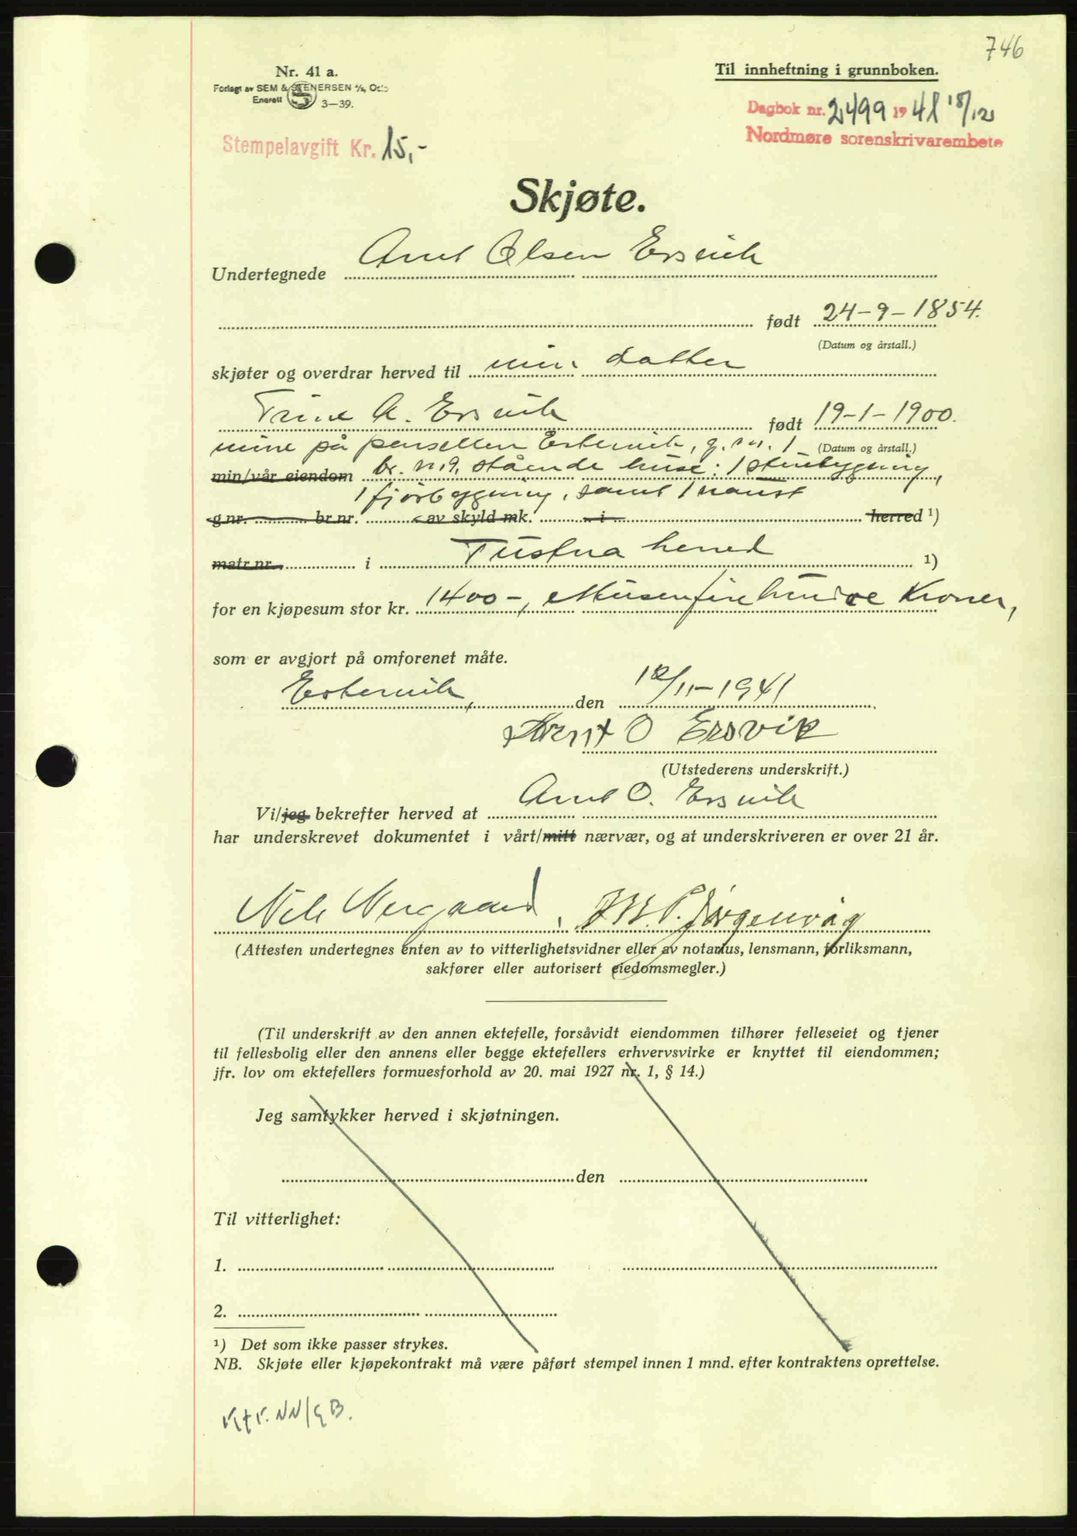 746
Nr. 41 a.
Til innheftning i grunnboken.
Forlagt av SEM & STENERSEN A/S, Oslo
Enerett 3–39.
Dagbok nr. 2499 1941 18/12
Stempelavgift Kr. 15,-
Nordmøre sorenskrivarembete
Skjøte.
Undertegnede Arnt Olsen Ersvik
født 24-9-1854.
(Datum og årstall.)
skjøter og overdrar herved til min datter
Trine A. Ersvik født 19-1-1900.
(Datum og årstall.)
mine på parsellen Estervik, g. nr. 1
min/vår eiendom br. nr. 9, stående huse: 1 stuebygning,
1 fjørbygning, samt 1 naust
g.nr. br.nr. av skyld mk. i herred ¹)
matr.nr. i Tustna herred ¹)
for en kjøpesum stor kr. 1400-, ettusenfirehundre Kroner,
som er avgjort på omforenet måte.
Estervik, den 12/11-1941
Arent O Ersvik
(Utstederens underskrift.)
Vi/jeg bekrefter herved at Arnt O. Ersvik
har underskrevet dokumentet i vårt/mitt nærvær, og at underskriveren er over 21 år.
Nils Nergaard, J. M. P. Jørgenvåg
(Attesten undertegnes enten av to vitterlighetsvidner eller av notarius, lensmann, forliksmann,
sakfører eller autorisert eiedomsmegler.)
(Til underskrift av den annen ektefelle, forsåvidt eiendommen tilhører felleseiet og tjener
til fellesbolig eller den annens eller begge ektefellers erhvervsvirke er knyttet til eiendommen;
jfr. lov om ektefellers formuesforhold av 20. mai 1927 nr. 1, § 14.)
Jeg samtykker herved i skjøtningen.
den
Til vitterlighet:
1.
2.
¹) Det som ikke passer strykes.
NB. Skjøte eller kjøpekontrakt må være påført stempel innen 1 mnd. efter kontraktens oprettelse.